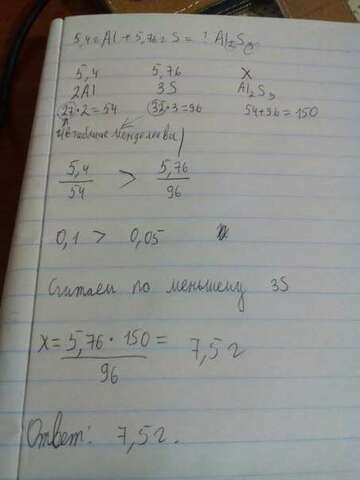 5,4г Al + 5,76г S = ? Al₂S₃
5,4 5,76 X
2Al 3S Al₂S₃
27·2=54 32·3=96 54+96=150
из таблицы Менделеева
5,4/54 > 5,76/96
0,1 > 0,05
Считаем по меньшему 3S
X = 5,76·150/96 = 7,5г
Ответ: 7,5г.